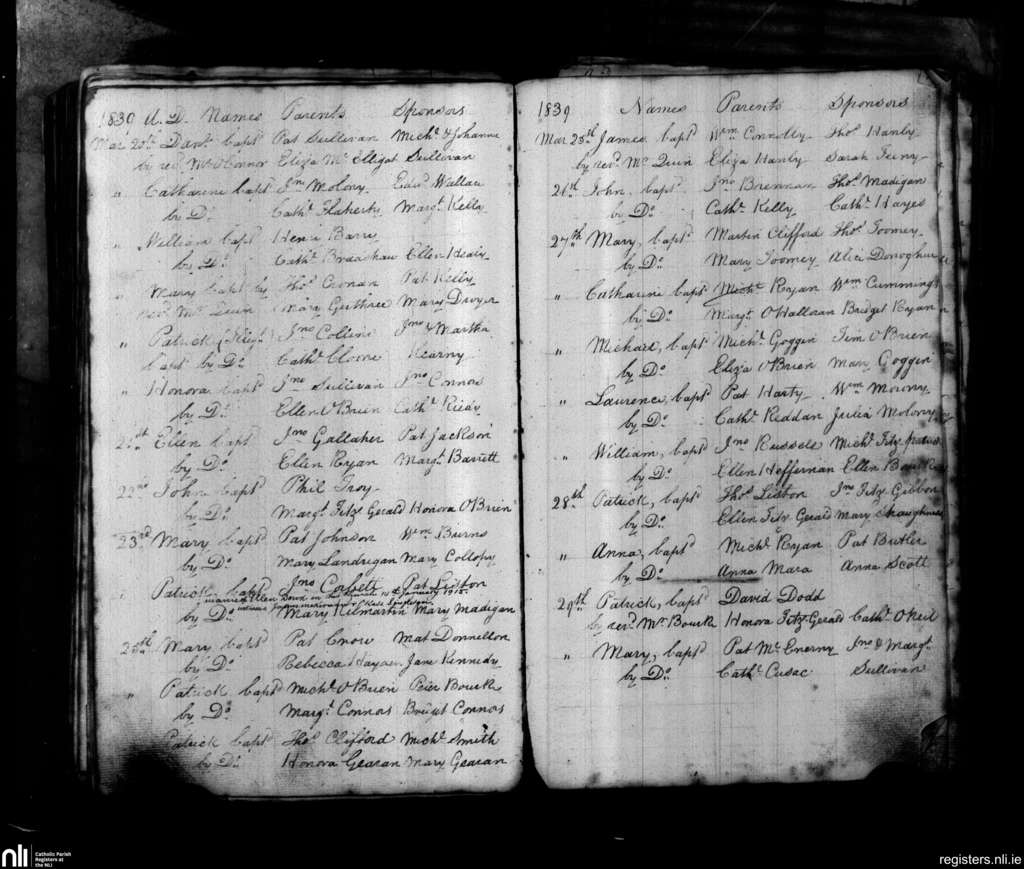 1839 A.D. Names Parents Sponsors
Mar 20th Danl. bapd Pat Sullivan Michl. & Johanna
by revd. Mr. O'Connor Eliza Mc Elligot Sullivan
" Catharine bapd Jno. Molony Edwd. Wallace
by Do. Cathe. Flaherty Margt. Kelly
" William bapd Henri Barry
by Do. Cathe. Bradshaw Ellen Healy
" Mary bapd by Thos. Cronan Pat Kelly
Revd. Mr. Quin Mary Guthrie Mary Dwyer
" Patrick Jno. Collins Jno. & Martha
bapd by Do. Cathe. Cloone Kearny
" Honora bapd Jno. Sullivan Jno. Connors
by Do. Ellen O'Brien Cathe.
21st Ellen bapd Jno. Gallaher Pat Jackson
by Do. Ellen Ryan Margt. Barrett
22nd John bapd Phil Troy
by Do. Margt. Fitz Gerald Honora O'Brien
23rd Mary bapd Pat Johnson Wm. Burns
by Do. Mary Landrigan Mary Collopy
Patrick bapd Jno. Corbett Pat Liston
married Ellen 14th January 1915
by Do. Mary Kilmartin Mary Madigan
25th Mary bapd Pat Crow Mat Donnellon
by Do. Rebecca Hayden Jane Kennedy
" Patrick bapd Michl. O'Brien Peter Bourk
by Do. Margt. Connors Bridget Connors
Patrick bapd Thos. Clifford Michl. Smith
by Do. Honora Gearan Mary Gearan
1839 Names Parents Sponsors
Mar 25th James bapd Wm. Connolly Thos. Hanly
by revd. Mr. Quin Eliza Hanly Sarah Feeny
26th John, bapd Jno. Brennan Thos. Madigan
by Do. Cathe. Kelly Cathe. Hayes
27th Mary, bapd Martin Clifford Thos. Toomey
by Do. Mary Toomey Alice Donoghue
" Catharine bapd Michl. Ryan Wm. Cummings
by Do. Margt. O'Halloran Bridget Ryan
" Michael, bapd Michl. Goggin Tim O'Brien
by Do. Eliza O'Brien Mary Goggin
" Laurence, bapd Pat Harty Wm. Mowny
by Do. Cathe. Reddan Julia Molony
" William, bapd Jno. Russell Michl. Fitz Patrick
by Do. Ellen Heffernan Ellen
28th Patrick, bapd Thos. Lisbon Jno. Fitz Gibbon
by Do. Ellen Fitz Gerald Mary Shaughness
" Anna, bapd Michl. Ryan Pat Butler
by Do. Anna Mara Anna Scott
29th Patrick, bapd David Dodd
by revd. Mr. Bourk Honora Fitz Gerald Cathe. O'Neil
" Mary, bapd Pat Mc Enerny Jno. & Margt.
by Do. Cathe. Cusac Sullivan
nli Catholic Parish
Registers at
the NLI
registers.nli.ie